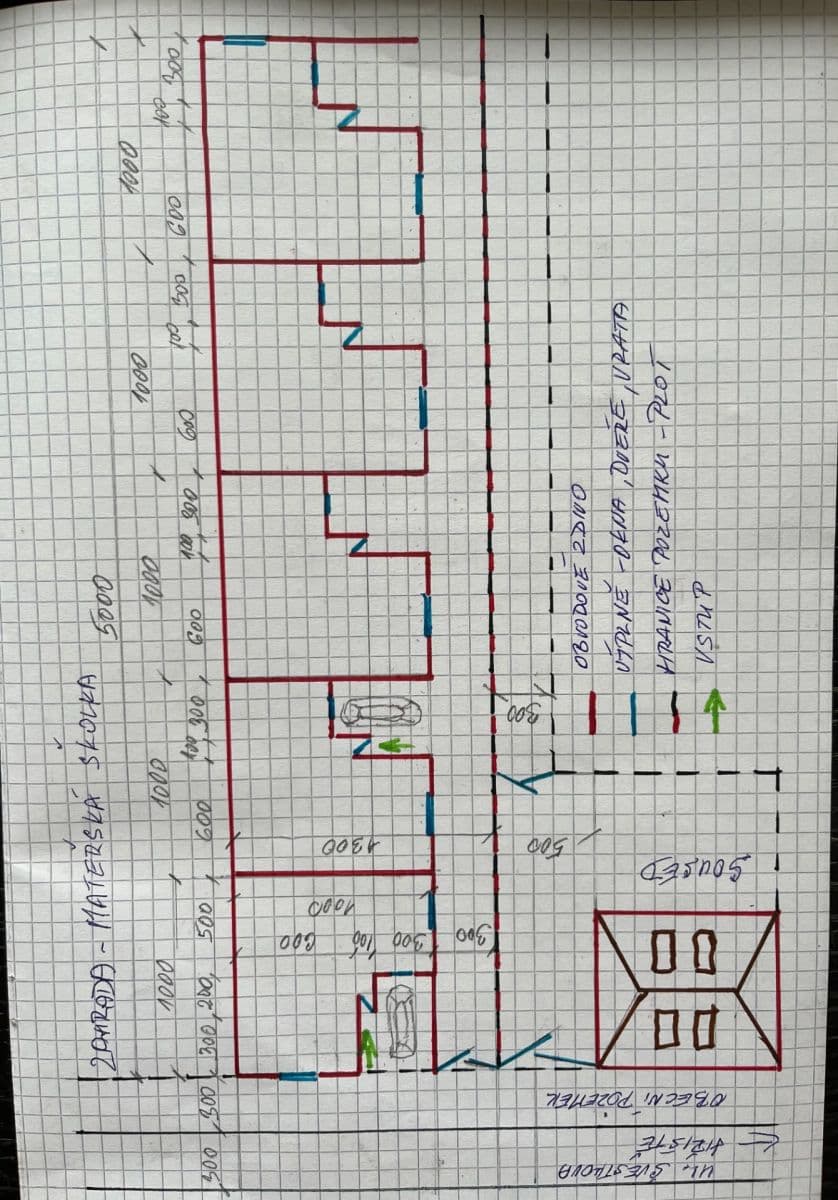 ZAHRADA - MATEŘSKÁ ŠKOLKA
5000
1000 1000 1000 1000 1000
300 300 300 200 500 600 100 300 600 100 300 600 100 300 600 100 300
600
1000
1300
100
300
300
500
300
UL. ŠVESTKOVA
HŘIŠTĚ
OBECNÍ POZEMEK
SOUSED
OBVODOVÉ ZDIVO
VÝPLNĚ - OKNA, DVEŘE, VRATA
HRANICE POZEMKU - PLOT
VSTUP